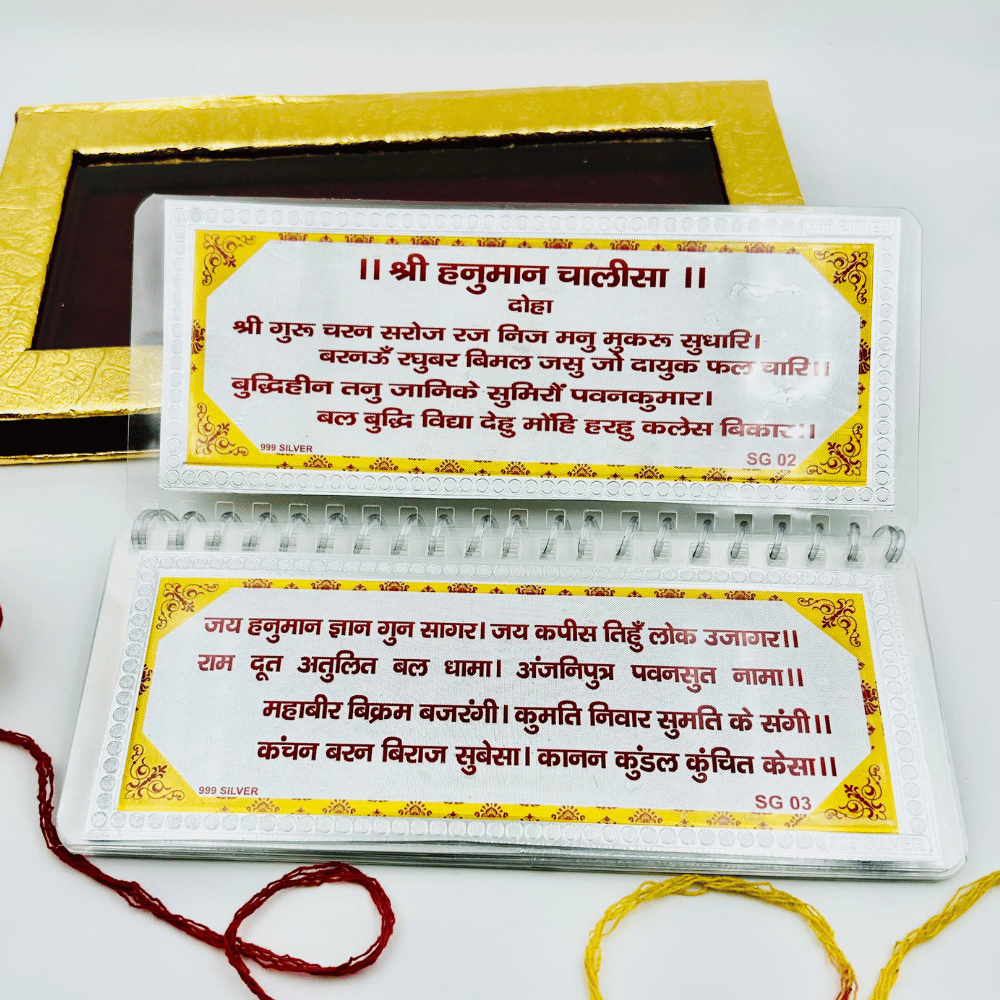 ।। श्री हनुमान चालीसा ।।
दोहा
श्री गुरू चरन सरोज रज निज मनु मुकरू सुधारि।
बरनऊँ रघुबर बिमल जसु जो दायुक फल चारि।।
बुद्धिहीन तनु जानिके सुमिरौं पवनकुमार।
बल बुद्धि विद्या देहु मोंहि हरहु कलेस बिकार।।
999 SILVER
SG 02
जय हनुमान ज्ञान गुन सागर। जय कपीस तिहुँ लोक उजागर।।
राम दूत अतुलित बल धामा। अंजनिपुत्र पवनसुत नामा।।
महाबीर बिक्रम बजरंगी। कुमति निवार सुमति के संगी।।
कंचन बरन बिराज सुबेसा। कानन कुंडल कुंचित केसा।।
999 SILVER
SG 03
999 SILVER